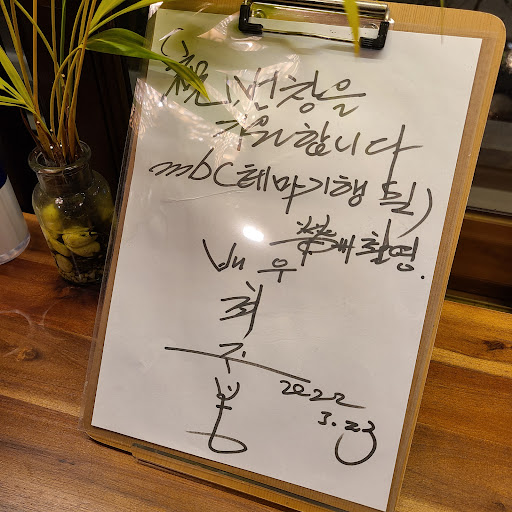 (祝) 번창을
기원합니다
mbc(테마기행 길)
촬영.
배우
최
주
봉
2022
3.23